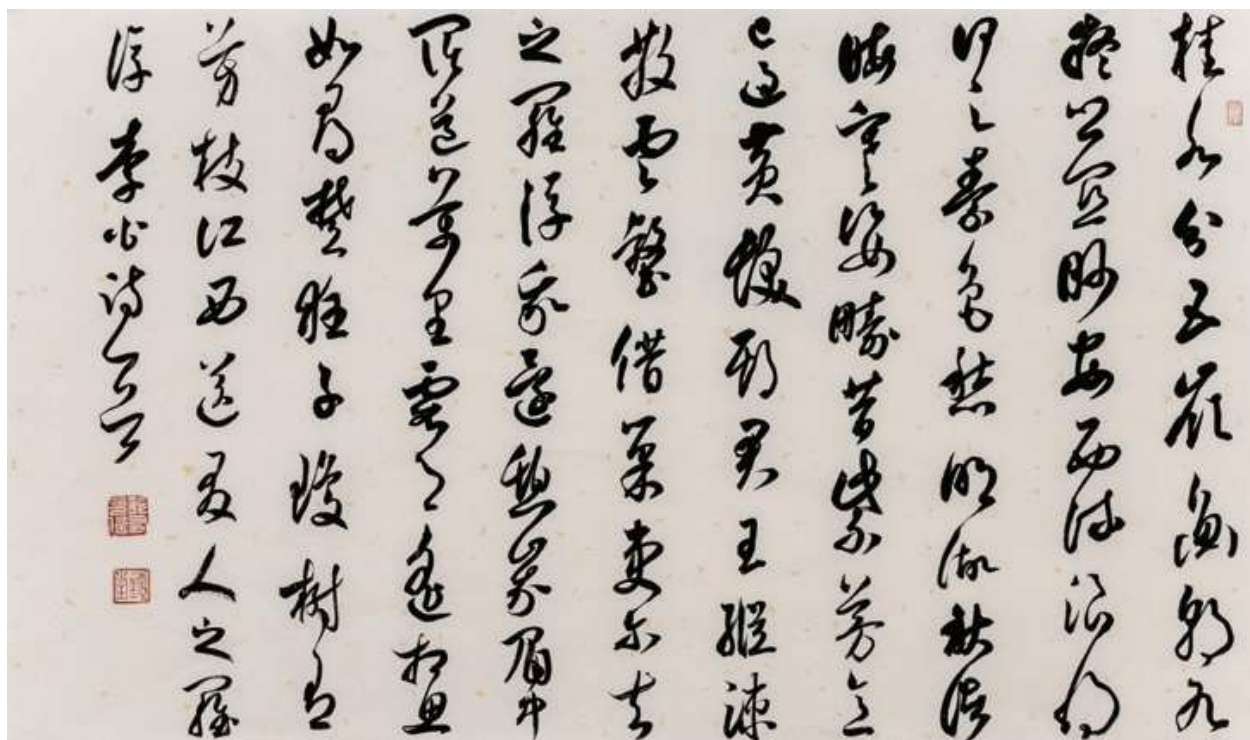 桂水分五嶺衡朝九
疑鄉關眇安西流浪將
何之素色愁明湖秋渚
晦寒姿疇昔紫芳意
已過黃髮期君王縱疎
散雲壑借巢夷尔去
之羅浮我還憩峩眉中
闊道萬里霞月遙相思
如尋楚狂子瓊樹有
芳枝江西送友人之羅
浮 李白詩